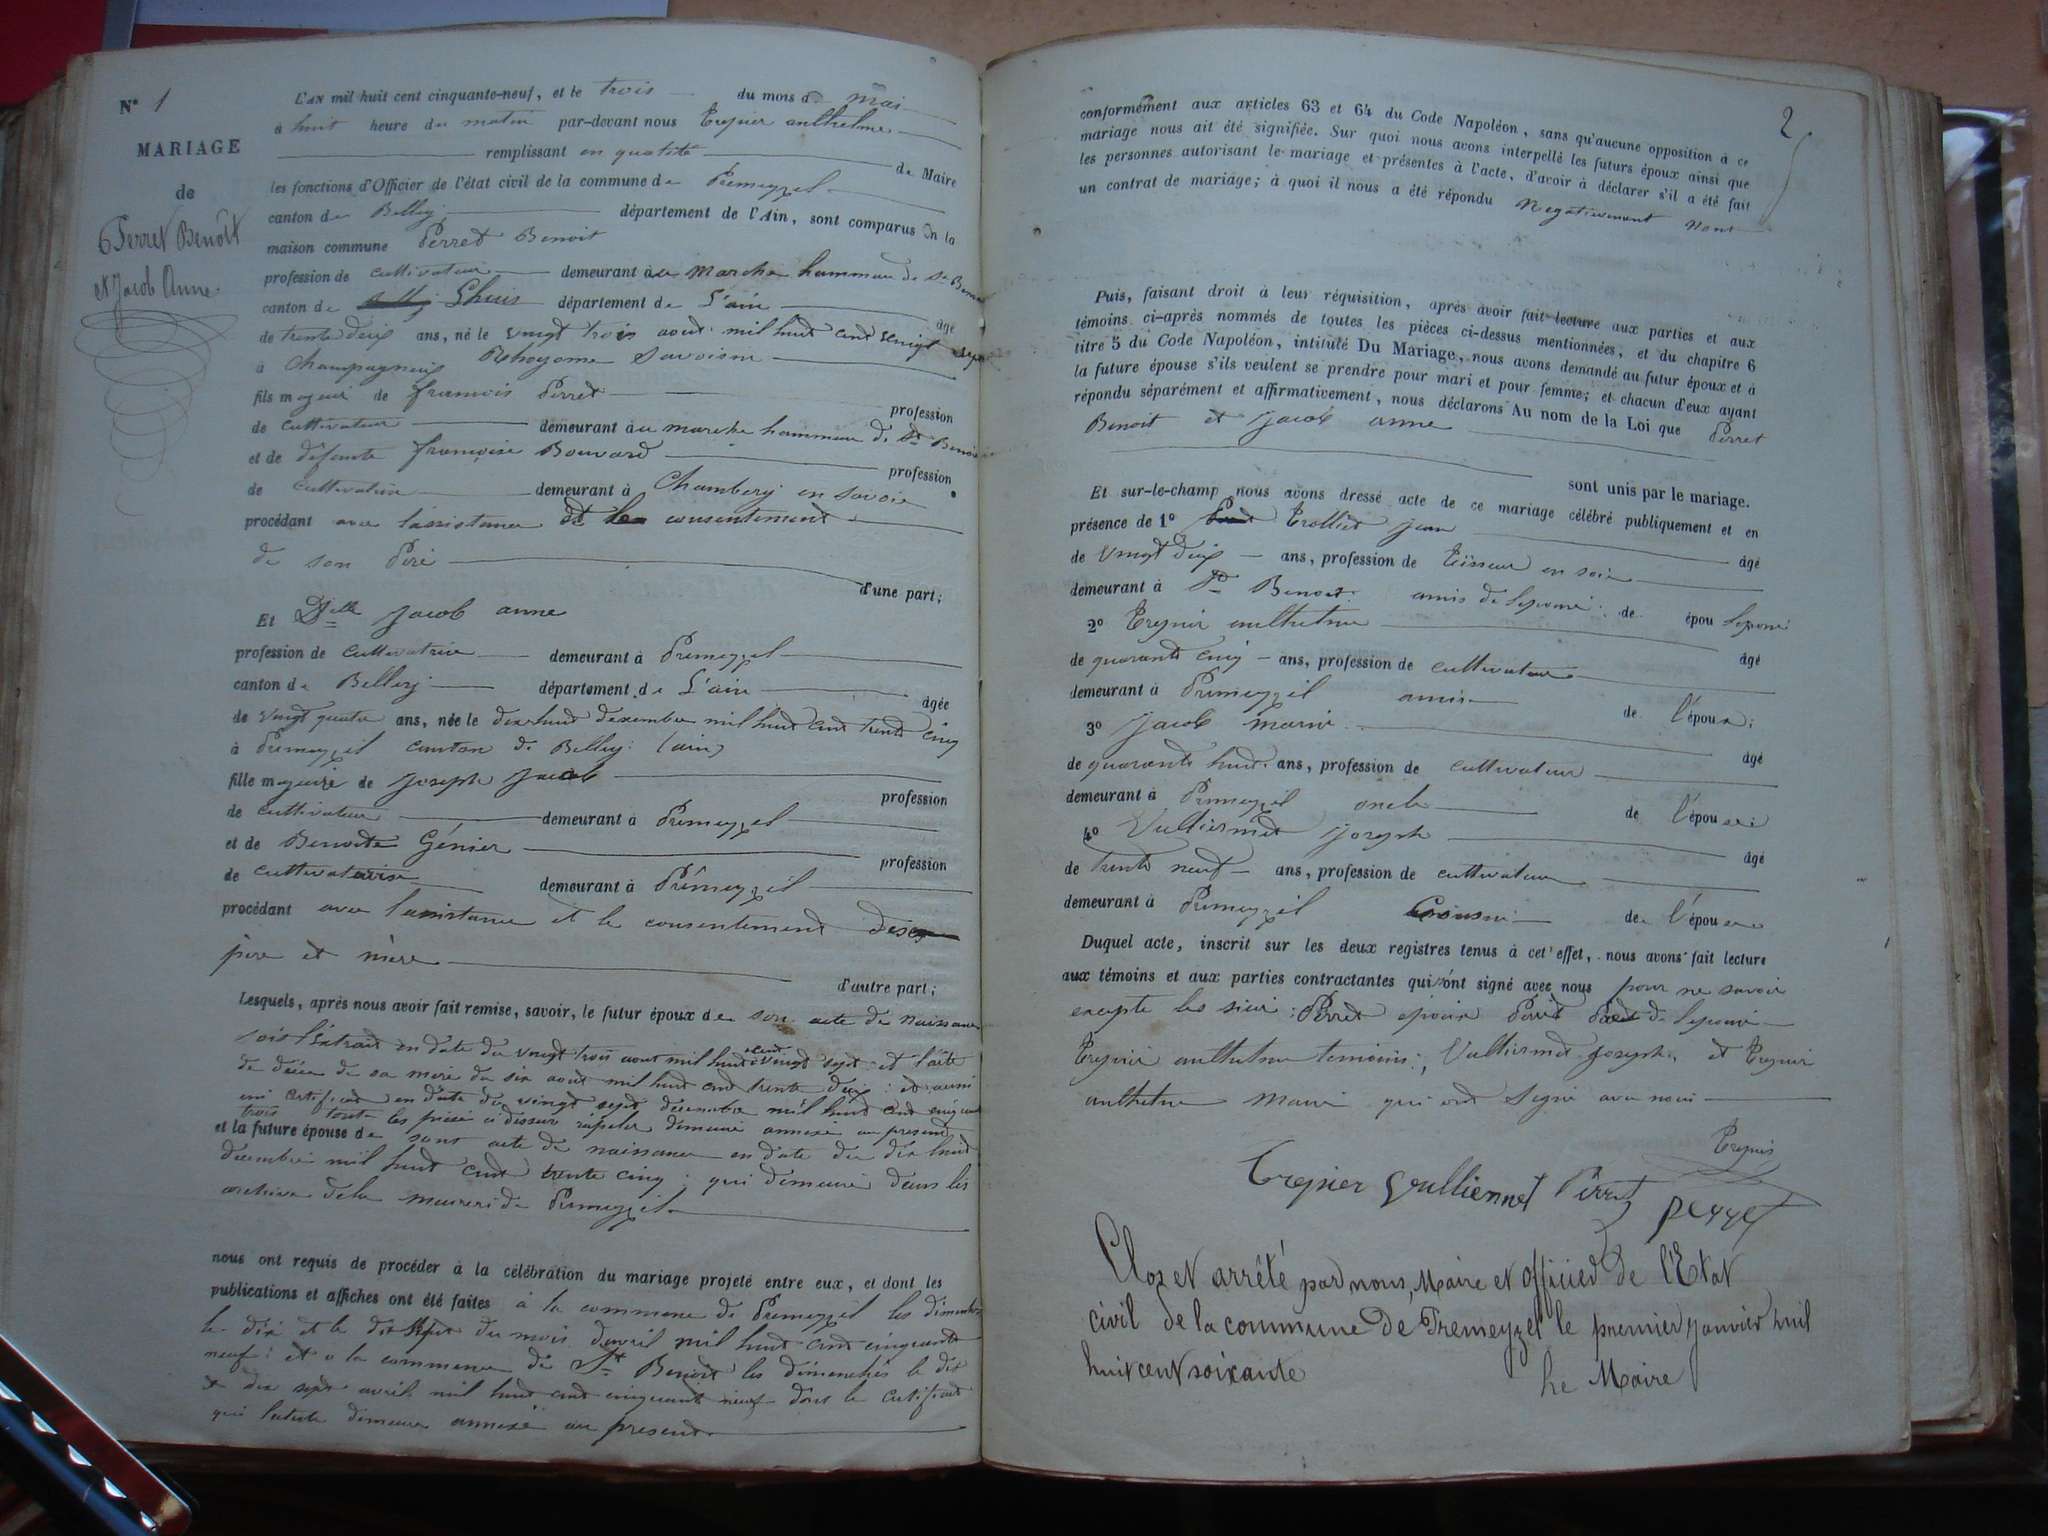 N° 1
MARIAGE
de
Perret Benoît
et Jacob Anne.
L'AN mil huit cent cinquante-neuf, et le trois du mois de mai
à huit heure du matin par-devant nous Trepier anthelme
remplissant en qualité de Maire
les fonctions d'Officier de l'état civil de la commune de Prémeyzel
canton de Belley département de l'Ain, sont comparus en la
maison commune Perret Benoit
profession de cultivateur demeurant au marche hammeau de St Benoit
canton de Lhuis département de L'ain âgé
de trente deux ans, né le vingt trois aout mil huit cent vingt sept
à Champagneux Rhoyome Savoisin
fils majeur de francois Perret profession
de cultivateur demeurant au marche hammeau de St Benoit
et de defunte françoise Bouvard profession
de cultivatrice demeurant à Chambery en savoie
procédant avec l'assistance et le consentement
de son Père d'une part;
Et Delle Jacob anne
profession de cultivatrice demeurant à Prémeyzel
canton de Belley département de L'ain âgée
de vingt quatre ans, née le dix huit dexembre mil huit cent trente cinq
à Prémeyzel canton de Belley (ain)
fille majeure de Joseph Jacob profession
de cultivateur demeurant à Prémeyzel
et de Benoite Génier profession
de cultivatrise demeurant à Prémeyzel
procédant avec l'assistance et le consentement de ses
père et mère d'autre part;
Lesquels, après nous avoir fait remise, savoir, le futur époux de son acte de naissance
sois l'extrait en date du vingt trois aout mil huit cent vingt sept et l'acte
de décée de sa mère du six aout mil huit cent trente deux : et aussi
un certificat en date du vingt sept décembre mil huit cent cinquante
trois toute les pièce ci dessus rapeler demeure annexé au present
et la future épouse de sont acte de naissance en date du dix huit
décembre mil huit cent trente cinq ; qui demeure dans les
archive de la meurerie de Prémeyzel
nous ont requis de procéder à la célébration du mariage projeté entre eux, et dont les
publications et affiches ont été faites à la commune de Prémeyzel les dimanches
le dix et le dix sept du mois d'avril mil huit cent cinquante
neuf : et a la commune de St Benoit les dimanches le dix
et dix sept avril mil huit cent cinquante neuf dont le certificat
qui l'ateste demeure annexé au present
2
conformément aux articles 63 et 64 du Code Napoléon, sans qu'aucune opposition à ce
mariage nous ait été signifiée. Sur quoi nous avons interpellé les futurs époux ainsi que
les personnes autorisant le mariage et présentes à l'acte, d'avoir à déclarer s'il a été fait
un contrat de mariage; à quoi il nous a été répondu Negativement nom
Puis, faisant droit à leur réquisition, après avoir fait lecture aux parties et aux
témoins ci-après nommés de toutes les pièces ci-dessus mentionnées, et du chapitre 6
titre 5 du Code Napoléon, intitulé Du Mariage, nous avons demandé au futur époux et à
la future épouse s'ils veulent se prendre pour mari et pour femme; et chacun d'eux ayant
répondu séparément et affirmativement, nous déclarons Au nom de la Loi que Perret
Benoit et Jacob anne
sont unis par le mariage.
Et sur-le-champ nous avons dressé acte de ce mariage célébré publiquement et en
présence de 1° Trolliet Jean âgé
de vingt deux ans, profession de Teisseur en soie
demeurant à St Benoit amis de l'épou de épou
2° Trepier anthelme âgé
de quarante cinq ans, profession de cultivateur
demeurant à Prémeyzel amis de l'époux;
3° Jacob Marie âgé
de quarante huit ans, profession de cultivateur
demeurant à Prémeyzel oncle de l'épouse;
4° Vulliermet Joseph âgé
de trente neuf ans, profession de cultivateur
demeurant à Prémeyzel de l'épouse
Duquel acte, inscrit sur les deux registres tenus à cet effet, nous avons fait lecture
aux témoins et aux parties contractantes qui n'ont signé avec nous pour ne savoir
excepte les sieur : Perret epoux Perret de l'epoux
Trepier anthelme temoins; Vulliermet Joseph et Trepier
anthelme Maire qui ont signé avec nous
Trepier
Trepier Vulliermet Perret perret
Clos et arrêté par nous, Maire et officier de l'Etat
civil de la commune de Premeyzel le premier janvier mil
huit cent soixante
Le Maire